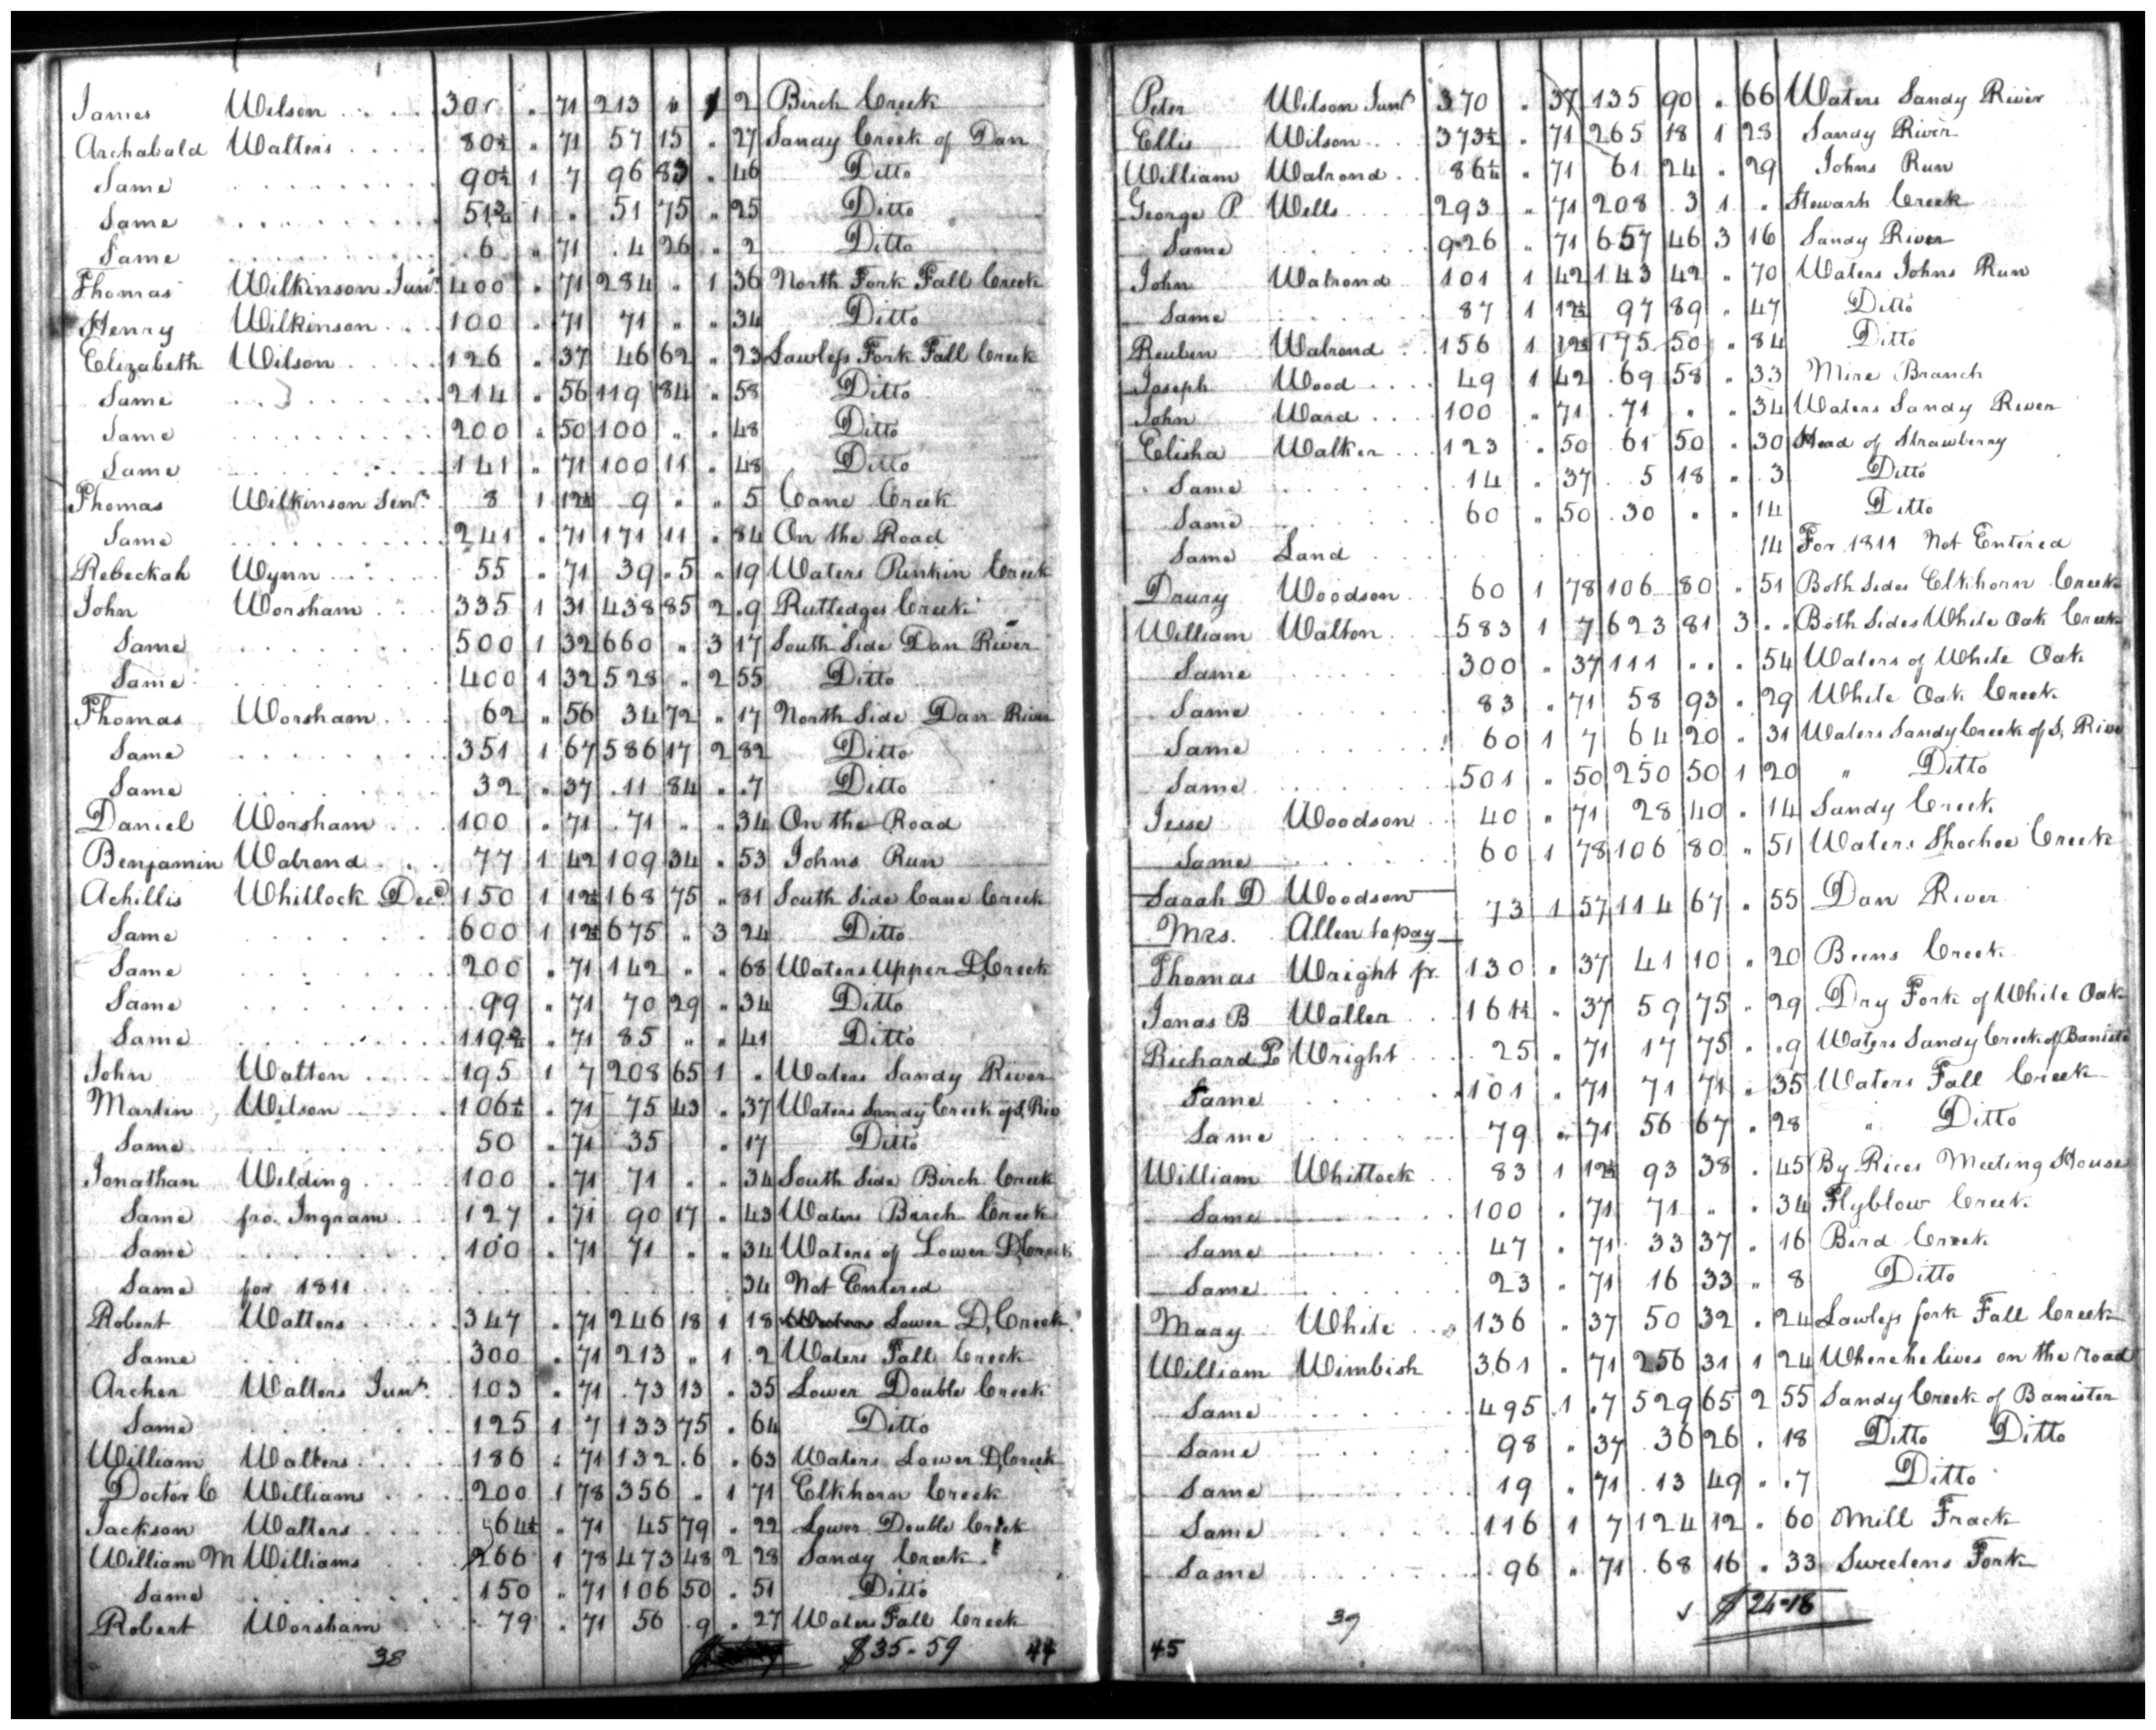 James Wilson 300 " 71 213 " 1 2 Birch Creek
Archabald Walters 80½ " 71 57 15 " 27 Sandy Creek of Dan
Same 90½ 1 7 96 83 " 46 Ditto
Same 51¾ 1 " 51 75 " 25 Ditto
Same 6 " 71 4 26 " 2 Ditto
Thomas Wilkinson Junr. 400 " 71 284 " 1 36 North Fork Fall Creek
Henry Wilkinson 100 " 71 71 " " 34 Ditto
Elizabeth Wilson 126 " 37 46 62 " 23 Lawless Fork Fall Creek
Same 214 " 56 119 84 " 58 Ditto
Same 200 " 50 100 " " 48 Ditto
Same 141 " 71 100 11 " 48 Ditto
Thomas Wilkinson Senr. 8 1 12½ 9 " " 5 Cane Creek
Same 241 " 71 171 11 " 84 On the Road
Rebeckah Wynn 55 " 71 39 5 " 19 Waters Punkin Creek
John Worsham 335 1 31 438 85 2 9 Rutledges Creek
Same 500 1 32 660 " 3 17 South Side Dan River
Same 400 1 32 528 " 2 55 Ditto
Thomas Worsham 62 " 56 34 72 " 17 North Side Dan River
Same 351 1 67 586 17 2 82 Ditto
Same 32 " 37 11 84 " 7 Ditto
Daniel Worsham 100 " 71 71 " " 34 On the Road
Benjamin Walrond 77 1 42 109 34 " 53 Johns Run
Achillis Whitlock Decd. 150 1 12½ 168 75 " 81 South Side Cane Creek
Same 600 1 12½ 675 " 3 24 Ditto
Same 200 " 71 142 " " 68 Waters Upper D, Creek
Same 99 " 71 70 29 " 34 Ditto
Same 119¾ " 71 85 " " 41 Ditto
John Watton 195 1 7 208 65 1 " Waters Sandy River
Martin Wilson 106¼ " 71 75 43 " 37 Waters Sandy Creek of S, Riv
Same 50 " 71 35 " 17 Ditto
Jonathan Welding 100 " 71 71 " " 34 South Side Birch Creek
Same fro. Ingram 127 " 71 90 17 " 43 Waters Birch Creek
Same 100 " 71 71 " " 34 Waters of Lower D, Creek
Same for 1811 34 Not Entered
Robert Watters 347 " 71 246 18 1 18 Lower D, Creek
Same 300 " 71 213 " 1 2 Waters Fall Creek
Archer Walters Junr. 103 " 71 73 13 " 35 Lower Double Creek
Same 125 1 7 133 75 " 64 Ditto
William Walters 186 " 71 132 6 " 63 Waters Lower D, Creek
Doctor C Williams 200 1 78 356 " 1 71 Elkhorn Creek
Jackson Walters 64½ " 71 45 79 " 22 Lower Double Creek
William M Williams 266 1 78 473 48 2 28 Sandy Creek
Same 150 " 71 106 50 " 51 Ditto
Robert Worsham 79 " 71 56 9 " 27 Waters Fall Creek
38 $35-59 44
Peter Wilson Junr 370 " 37 135 90 " 66 Waters Sandy River
Ellis Wilson 373½ " 71 265 18 1 28 Sandy River
William Walrond 86¼ " 71 61 24 " 29 Johns Run
George P Wells 293 " 71 208 3 1 " Stewarts Creek
Same 926 " 71 657 46 3 16 Sandy River
John Walrond 101 1 42 143 42 " 70 Waters Johns Run
Same 87 1 12½ 97 89 " 47 Ditto
Reuben Walrond 156 1 12½ 175 50 " 84 Ditto
Joseph Wood 49 1 42 69 58 " 33 Mire Branch
John Ward 100 " 71 71 " " 34 Waters Sandy River
Elisha Walker 123 " 50 61 50 " 30 Head of Strawberry
Same 14 " 37 5 18 " 3 Ditto
Same 60 " 50 30 " " 14 Ditto
Same Land 14 For 1811 Not Entered
Drury Woodson 60 1 78 106 80 " 51 Both Sides Elkhorn Creek
William Walton 583 1 7 623 81 3 " Both Sides White Oak Creek
Same 300 " 37 111 " " 54 Waters of White Oak
Same 83 " 71 58 93 " 29 White Oak Creek
Same 60 1 7 64 20 " 31 Waters Sandy Creek of S, River
Same 501 " 50 250 50 1 20 " Ditto
Jesse Woodson 40 " 71 28 40 " 14 Sandy Creek
Same 60 1 78 106 80 " 51 Waters Shochoe Creek
Sarah D Woodson 73 1 57 114 67 " 55 Dan River
Mrs. Allen to pay
Thomas Wright jr. 130 " 37 41 10 " 20 Beens Creek
Jonas B Waller 161½ " 37 59 75 " 29 Dry Fork of White Oak
Richard P Wright 25 " 71 17 75 " 9 Waters Sandy Creek of Baniste
Same 101 " 71 71 71 " 35 Waters Fall Creek
Same 79 " 71 56 67 " 28 " Ditto
William Whitlock 83 1 12½ 93 38 " 45 By Rices Meeting House
Same 100 " 71 71 " " 34 Flyblow Creek
Same 47 " 71 33 37 " 16 Bird Creek
Same 23 " 71 16 33 " 8 Ditto
Mary White 136 " 37 50 32 " 24 Lawless fork Fall Creek
William Wimbish 361 " 71 256 31 1 24 Where he lives on the road
Same 495 1 7 529 65 2 55 Sandy Creek of Banister
Same 98 " 37 36 26 " 18 Ditto Ditto
Same 19 " 71 13 49 " 7 Ditto
Same 116 1 7 124 12 " 60 Mill Tract
Same 96 " 71 68 16 " 33 Sweetens Fork
$24-18
45 39